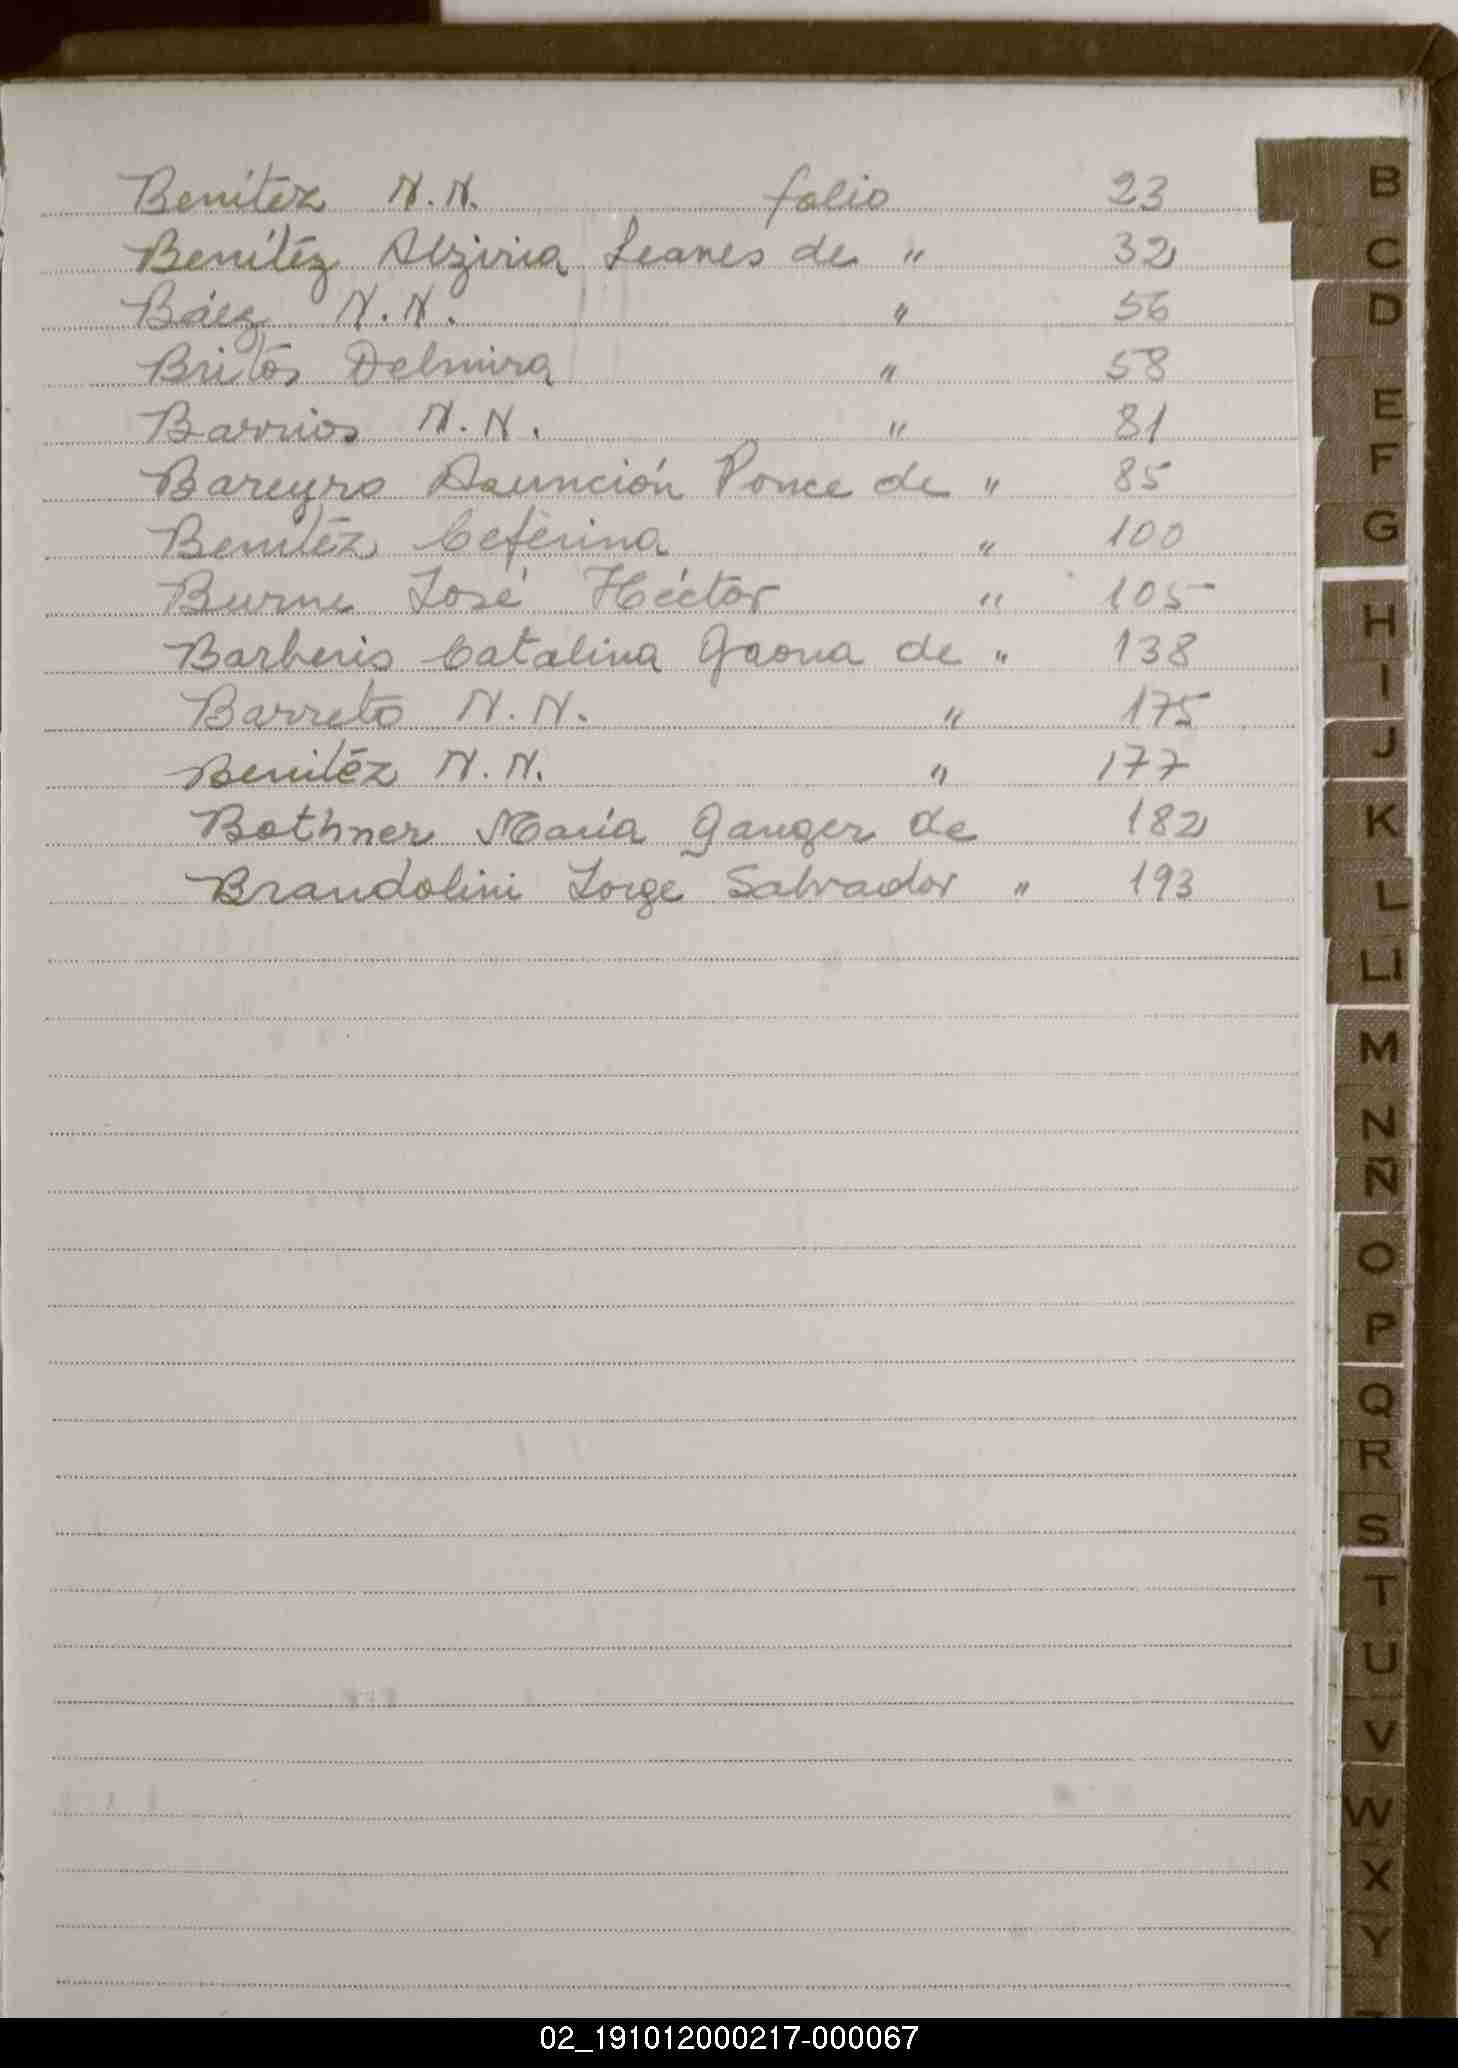 Benítez N.N. folio 23
Benítez Alziria Leanes de " 32
Báez N.N. " 56
Britos Delmira " 58
Barrios N.N. " 81
Bareyro Asunción Ponce de " 85
Benítez Ceferina " 100
Burne José Héctor " 105
Barberis Catalina Gaona de " 138
Barreto N.N. " 175
Benítez N.N. " 177
Bothner María Ganger de 182
Brandolini Jorge Salvador " 193
B
C
D
E
F
G
H
I
J
K
L
Ll
M
N
Ñ
O
P
Q
R
S
T
U
V
W
X
Y
02_191012000217-000067